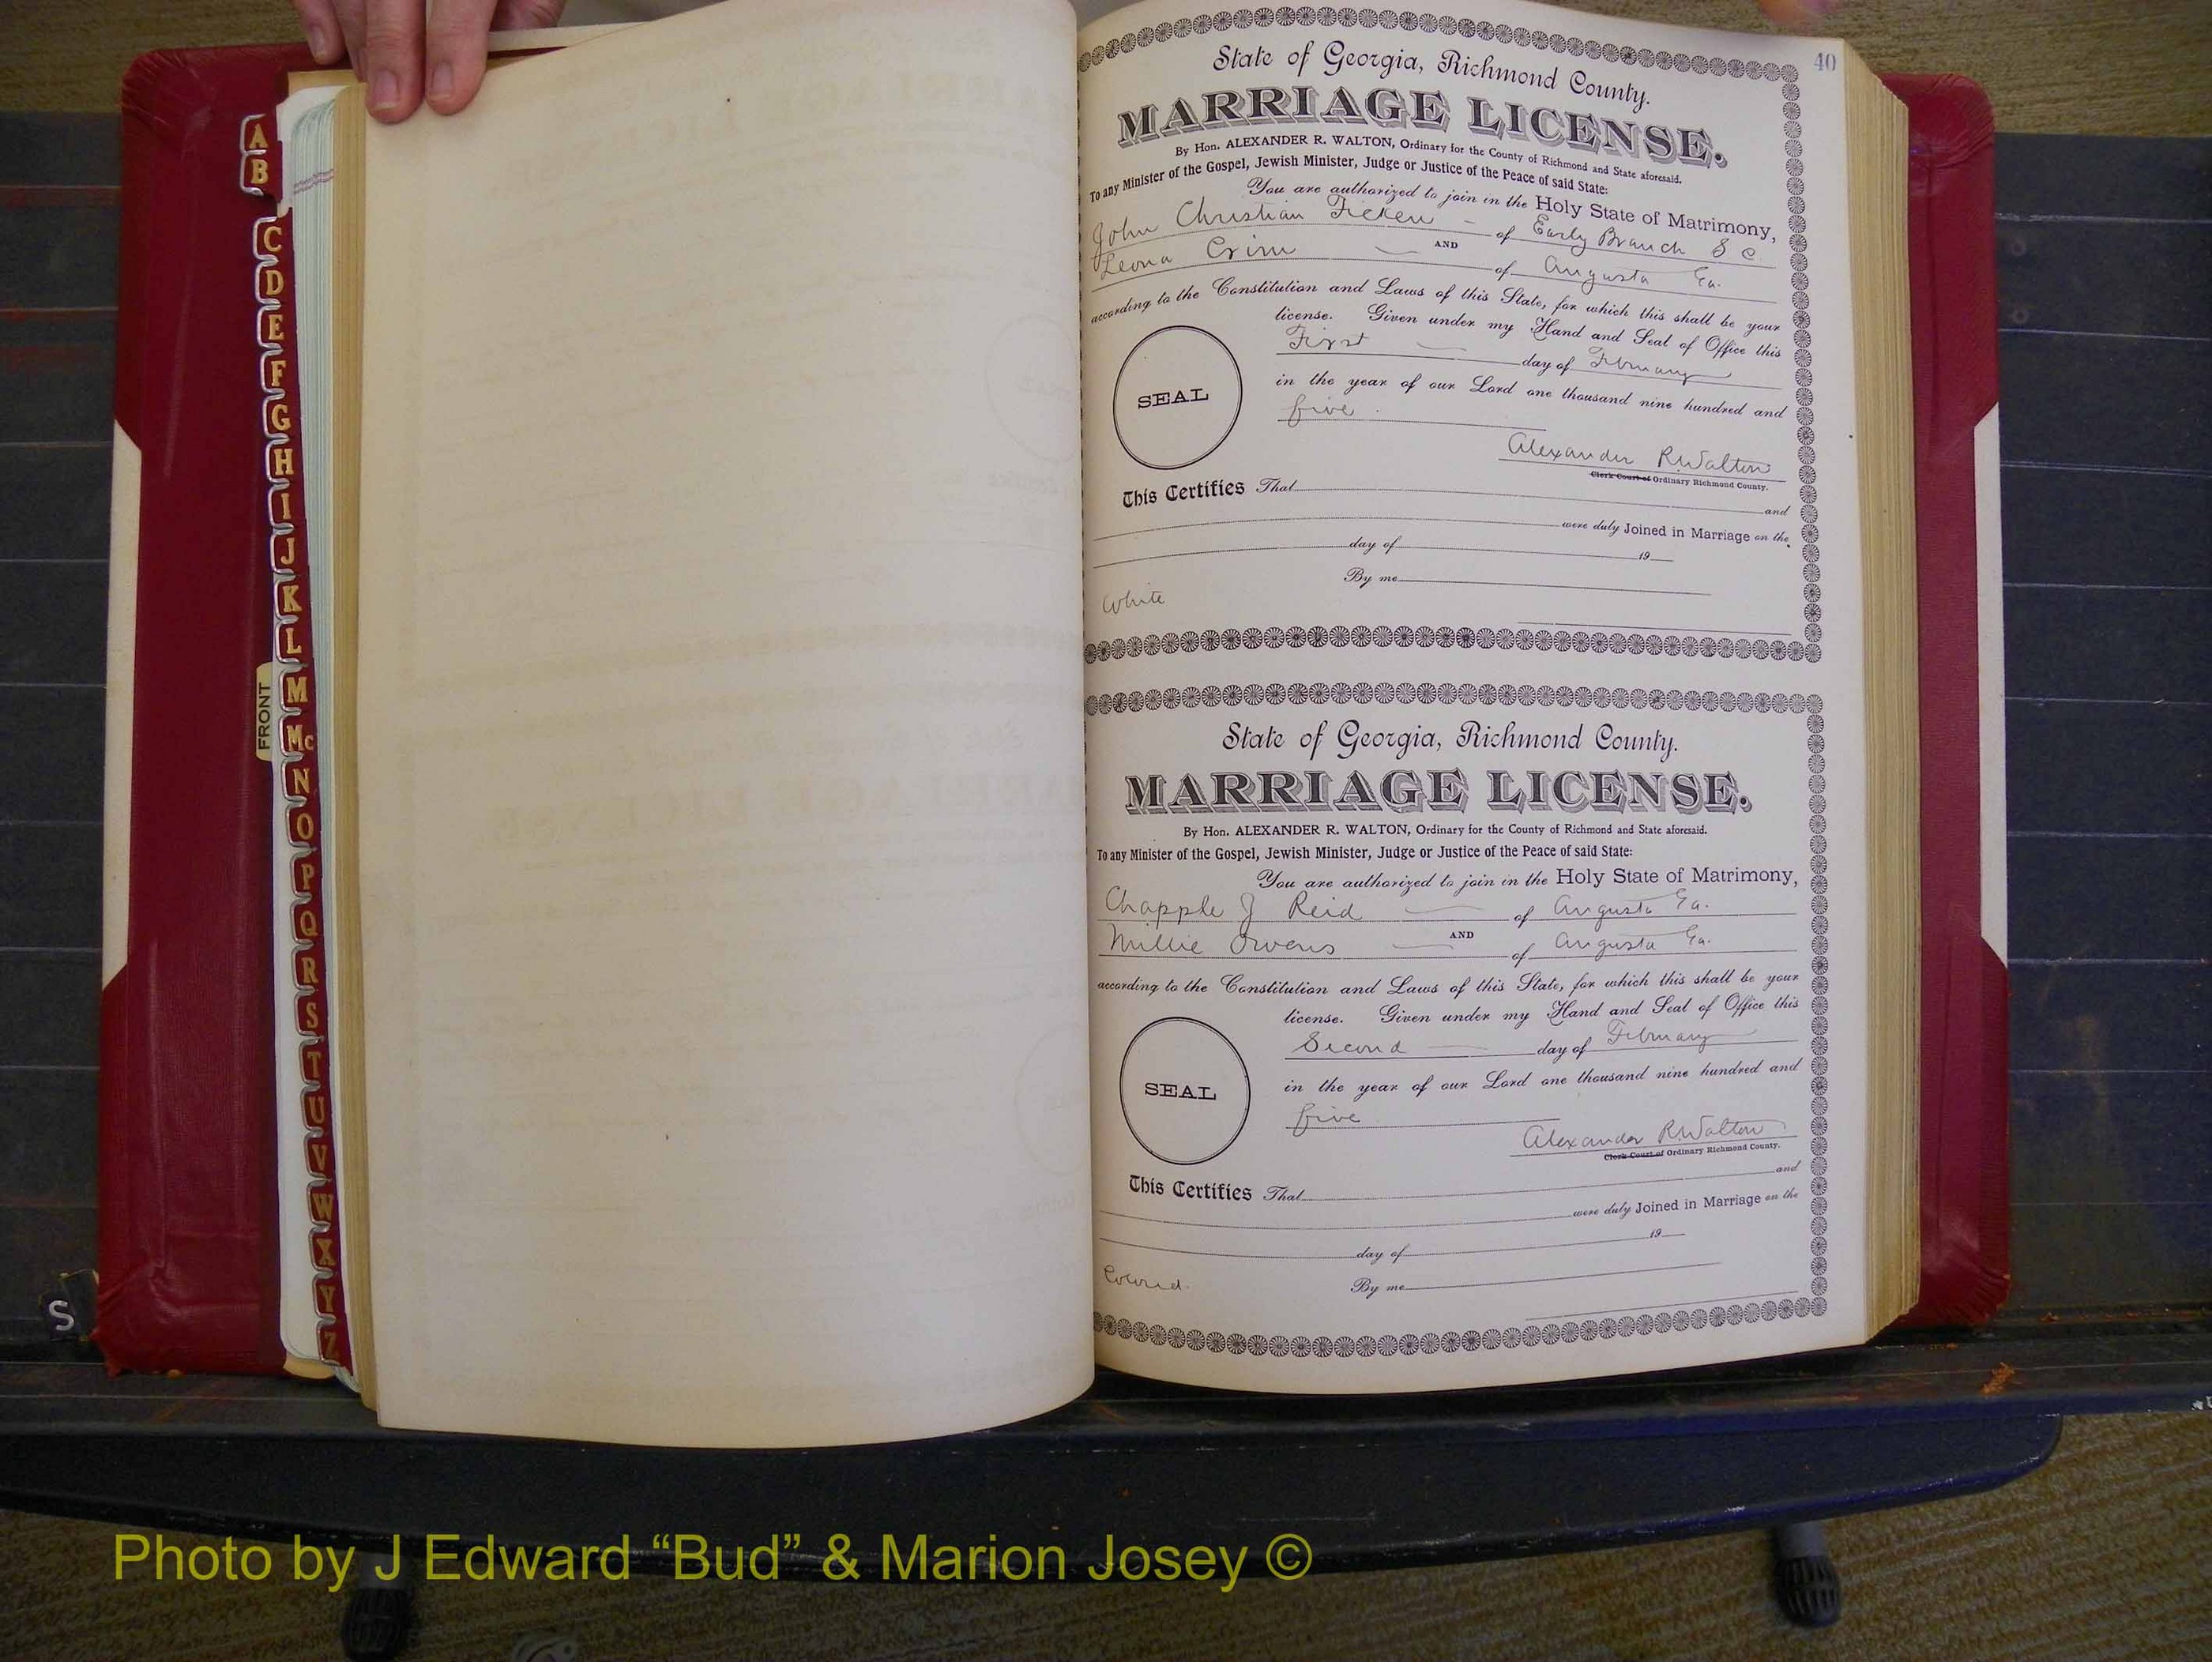 A
B
C
D
E
F
G
H
I
J
K
L
M
Mc
N
O
P
Q
R
S
T
U
V
W
X
Y
Z
FRONT
S
40
State of Georgia, Richmond County.
MARRIAGE LICENSE.
By Hon. ALEXANDER R. WALTON, Ordinary for the County of Richmond and State aforesaid.
To any Minister of the Gospel, Jewish Minister, Judge or Justice of the Peace of said State:
You are authorized to join in the Holy State of Matrimony,
John Christian Ficken of Early Branch S C
AND
Leona Crim of Augusta Ga.
according to the Constitution and Laws of this State, for which this shall be your
license. Given under my Hand and Seal of Office this
First day of February
in the year of our Lord one thousand nine hundred and
five.
SEAL
Alexander R Walton
Clerk Court of Ordinary Richmond County.
This Certifies That
and
were duly Joined in Marriage on the
day of 19
By me
White
State of Georgia, Richmond County.
MARRIAGE LICENSE.
By Hon. ALEXANDER R. WALTON, Ordinary for the County of Richmond and State aforesaid.
To any Minister of the Gospel, Jewish Minister, Judge or Justice of the Peace of said State:
You are authorized to join in the Holy State of Matrimony,
Chapple J Reid of Augusta Ga.
AND
Millie Owens of Augusta Ga.
according to the Constitution and Laws of this State, for which this shall be your
license. Given under my Hand and Seal of Office this
Second day of February
in the year of our Lord one thousand nine hundred and
five
SEAL
Alexander R Walton
Clerk Court of Ordinary Richmond County.
This Certifies That
and
were duly Joined in Marriage on the
day of 19
By me
Colored.
Photo by J Edward “Bud” & Marion Josey ©